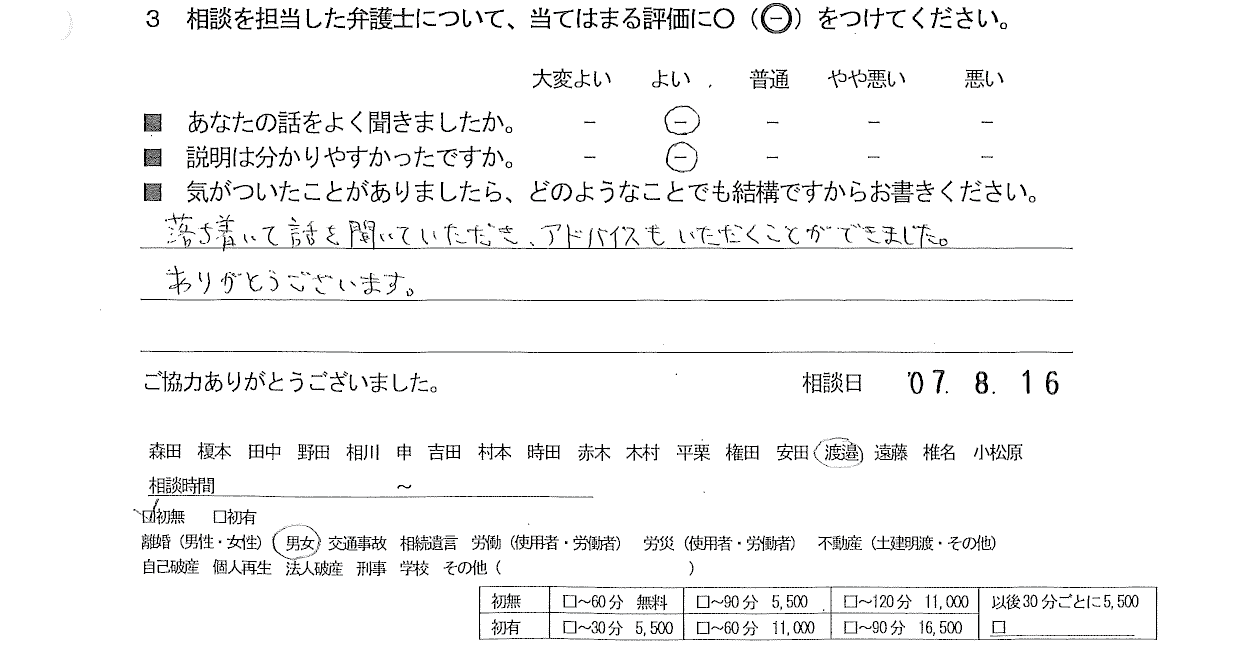 3 相談を担当した弁護士について、当てはまる評価に〇（㊀）をつけてください。
大変よい よい 普通 やや悪い 悪い
■ あなたの話をよく聞きましたか。 － ㊀ － － －
■ 説明は分かりやすかったですか。 － ㊀ － － －
■ 気がついたことがありましたら、どのようなことでも結構ですからお書きください。
落ち着いて話を聞いていただき、アドバイスもいただくことができました。
ありがとうございます。
ご協力ありがとうございました。 相談日 '07. 8. 16
森田 榎本 田中 野田 相川 申 吉田 村本 時田 赤木 木村 平栗 権田 安田 渡邉 遠藤 椎名 小松原
相談時間 ～
☑初無 □初有
離婚（男性・女性） 男女 交通事故 相続遺言 労働（使用者・労働者） 労災（使用者・労働者） 不動産（土建明渡・その他）
自己破産 個人再生 法人破産 刑事 学校 その他（ ）
初無 □～60分 無料 □～90分 5,500 □～120分 11,000 以後30分ごとに5,500
初有 □～30分 5,500 □～60分 11,000 □～90分 16,500 □